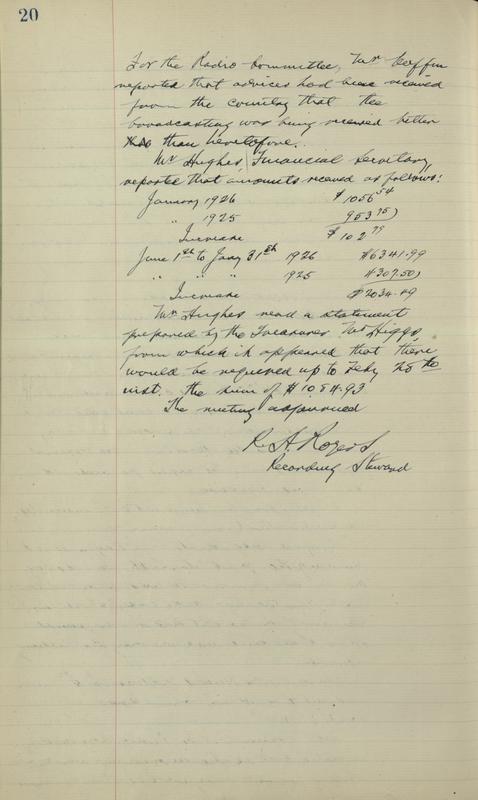 20
For the Radio Committee, Mr Coffin
reported that advices had been received
from the country that the
broadcasting was being received better
than heretofore.
Mr Hughes, Financial Secretary,
reported that amounts received as follows:
January 1926 $1056 54
" 1925 953 75)
Increase $102 79
June 1st to Jany 31st 1926 $6341.99
" " " 1925 4307.50)
Increase $2034.49
Mr Hughes read a statement
prepared by the Treasurer Mr Higgs,
from which it appeared that there
would be required up to Feby 28th
inst. the sum of $1084.93
The meeting adjourned
R. A. Rogers
Recording Steward